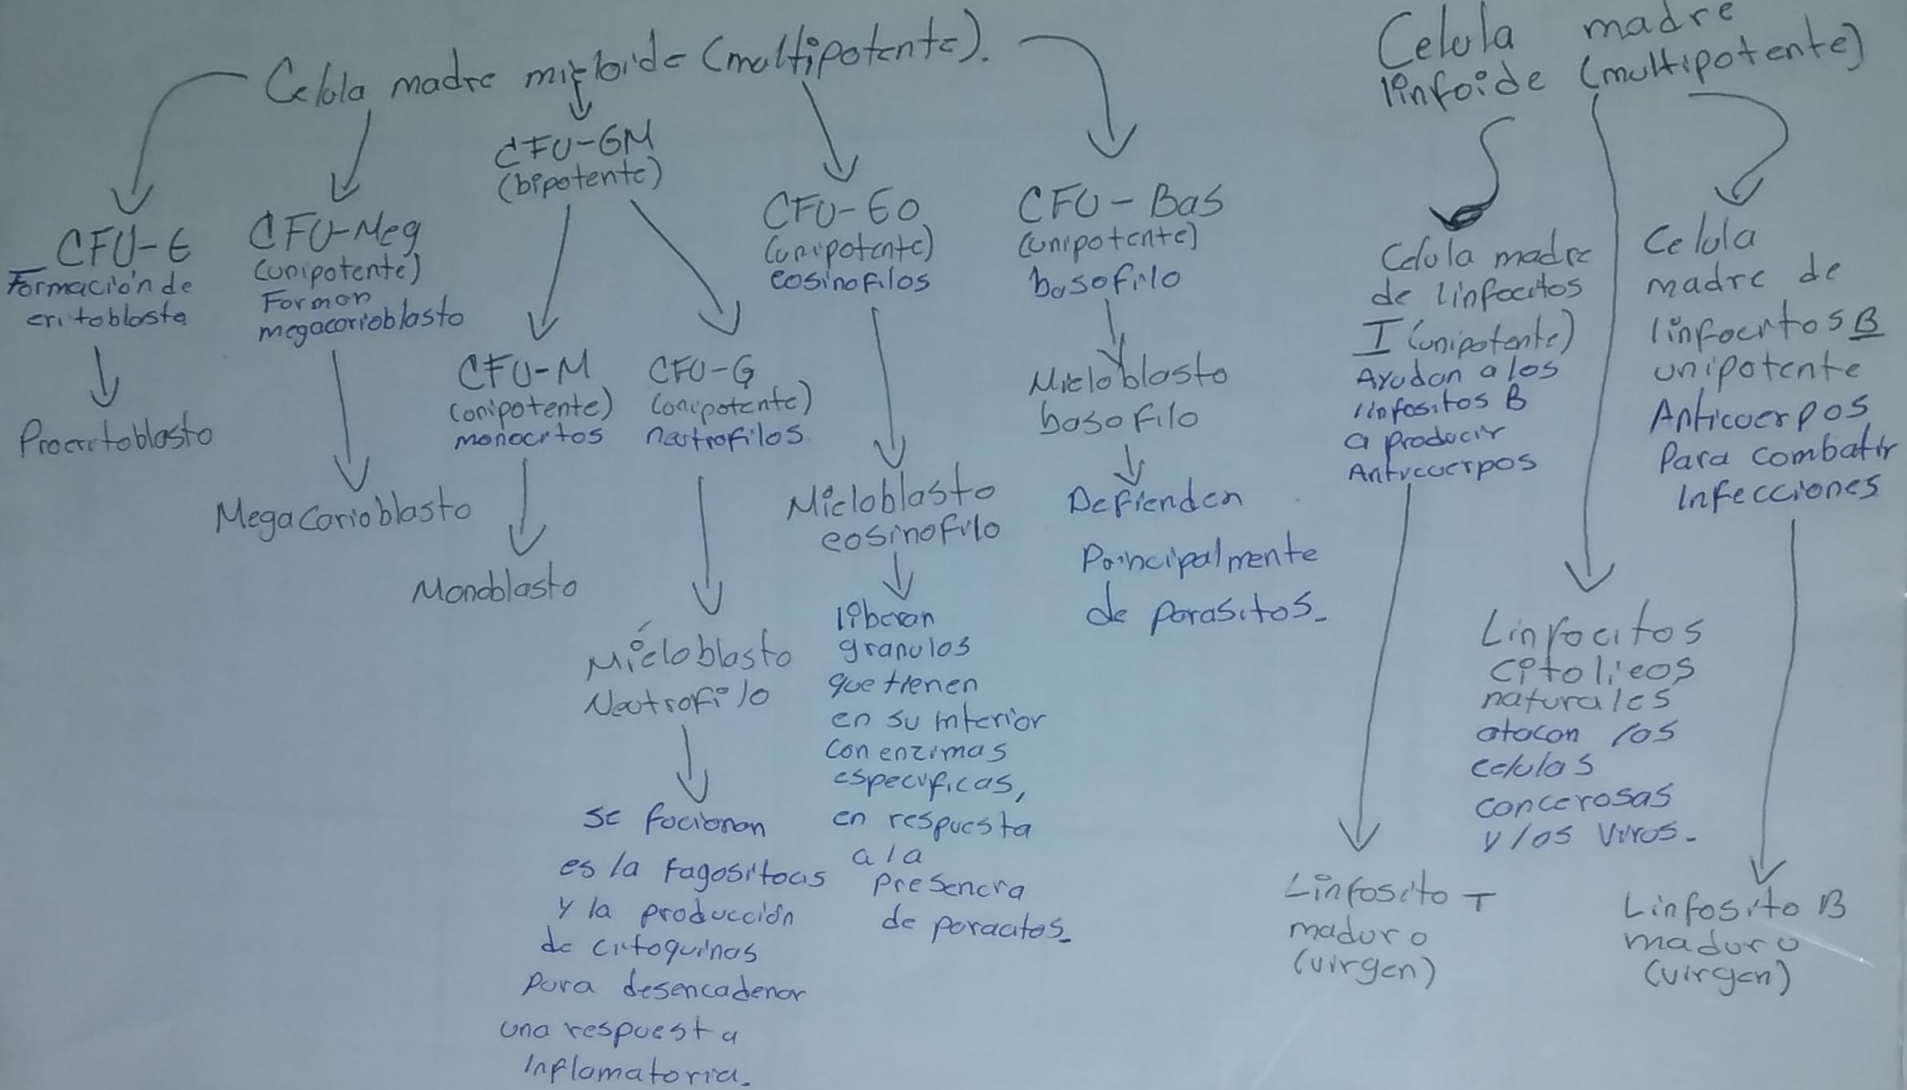 Celula madre mieloide (multipotente).
CFU-E
Formación de
eritoblasto
Proeritoblasto
CFU-Meg
(unipotente)
Forman
megacarioblasto
Megacarioblasto
CFU-GM
(bipotente)
CFU-M
(unipotente)
monocitos
Monoblasto
CFU-G
(unipotente)
neutrofilos.
Mieloblasto
Neutrofilo
se focionan
es la fagositocis
y la producción
de citoquinas
para desencadenar
una respuesta
Inflamatoria.
CFU-Eo
(unipotente)
eosinofilos
Mieloblasto
eosinofilo
liberan
granulos
que tienen
en su interior
con enzimas
especificas,
en respuesta
a la
presencia
de
CFU-Bas
(unipotente)
basofilo
Mieloblasto
basofilo
Defienden
Principalmente
de parasitos.
Celula madre
linfoide (multipotente)
Celula madre
de linfocitos
T (unipotente)
Ayudan a los
linfositos B
a producir
Anticuerpos
Linfosito T
maduro
(virgen)
Linfocitos
citolicos
naturales
atacan las
celulas
cancerosas
y los virus.
Celula
madre de
linfocitos B
unipotente
Anticuerpos
Para combatir
Infecciones
Linfosito B
maduro
(virgen)